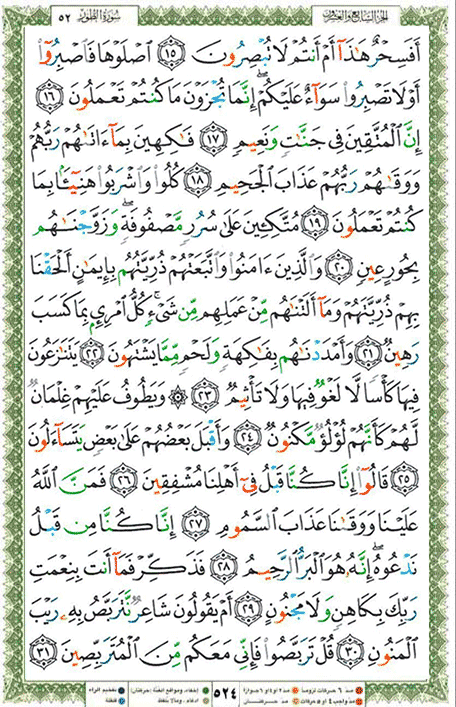 الجزء السابع والعشرون سورة الطور ٥٢
أَفَسِحْرٌ هَٰذَآ أَمْ أَنتُمْ لَا تُبْصِرُونَ ١٥ ٱصْلَوْهَا فَٱصْبِرُوٓا۟
أَوْ لَا تَصْبِرُوا۟ سَوَآءٌ عَلَيْكُمْ ۖ إِنَّمَا تُجْزَوْنَ مَا كُنتُمْ تَعْمَلُونَ ١٦
إِنَّ ٱلْمُتَّقِينَ فِى جَنَّٰتٍ وَنَعِيمٍ ١٧ فَٰكِهِينَ بِمَآ ءَاتَىٰهُمْ رَبُّهُمْ
وَوَقَىٰهُمْ رَبُّهُمْ عَذَابَ ٱلْجَحِيمِ ١٨ كُلُوا۟ وَٱشْرَبُوا۟ هَنِيٓـًٔۢا بِمَا
كُنتُمْ تَعْمَلُونَ ١٩ مُتَّكِـِٔينَ عَلَىٰ سُرُرٍ مَّصْفُوفَةٍ ۖ وَزَوَّجْنَٰهُم
بِحُورٍ عِينٍ ٢٠ وَٱلَّذِينَ ءَامَنُوا۟ وَٱتَّبَعَتْهُمْ ذُرِّيَّتُهُم بِإِيمَٰنٍ أَلْحَقْنَا
بِهِمْ ذُرِّيَّتَهُمْ وَمَآ أَلَتْنَٰهُم مِّنْ عَمَلِهِم مِّن شَىْءٍ ۚ كُلُّ ٱمْرِئٍۭ بِمَا كَسَبَ
رَهِينٌ ٢١ وَأَمْدَدْنَٰهُم بِفَٰكِهَةٍ وَلَحْمٍ مِّمَّا يَشْتَهُونَ ٢٢ يَتَنَٰزَعُونَ
فِيهَا كَأْسًا لَّا لَغْوٌ فِيهَا وَلَا تَأْثِيمٌ ٢٣ ۞ وَيَطُوفُ عَلَيْهِمْ غِلْمَانٌ
لَّهُمْ كَأَنَّهُمْ لُؤْلُؤٌ مَّكْنُونٌ ٢٤ وَأَقْبَلَ بَعْضُهُمْ عَلَىٰ بَعْضٍ يَتَسَآءَلُونَ
٢٥ قَالُوٓا۟ إِنَّا كُنَّا قَبْلُ فِىٓ أَهْلِنَا مُشْفِقِينَ ٢٦ فَمَنَّ ٱللَّهُ
عَلَيْنَا وَوَقَىٰنَا عَذَابَ ٱلسَّمُومِ ٢٧ إِنَّا كُنَّا مِن قَبْلُ
نَدْعُوهُ ۖ إِنَّهُۥ هُوَ ٱلْبَرُّ ٱلرَّحِيمُ ٢٨ فَذَكِّرْ فَمَآ أَنتَ بِنِعْمَتِ
رَبِّكَ بِكَاهِنٍ وَلَا مَجْنُونٍ ٢٩ أَمْ يَقُولُونَ شَاعِرٌ نَّتَرَبَّصُ بِهِۦ رَيْبَ
ٱلْمَنُونِ ٣٠ قُلْ تَرَبَّصُوا۟ فَإِنِّى مَعَكُم مِّنَ ٱلْمُتَرَبِّصِينَ ٣١
مدّ ٦ حركات لزوماً مدّ ٢ او ٤ او ٦ جوازاً ٥٢٤ إخفاء، ومواقع الغُنَّة (حركتان) تفخيم الراء
مدّ واجب ٤ او ٥ حركات مدّ حركتان إدغام، وما لا يُلفظ قلقلة